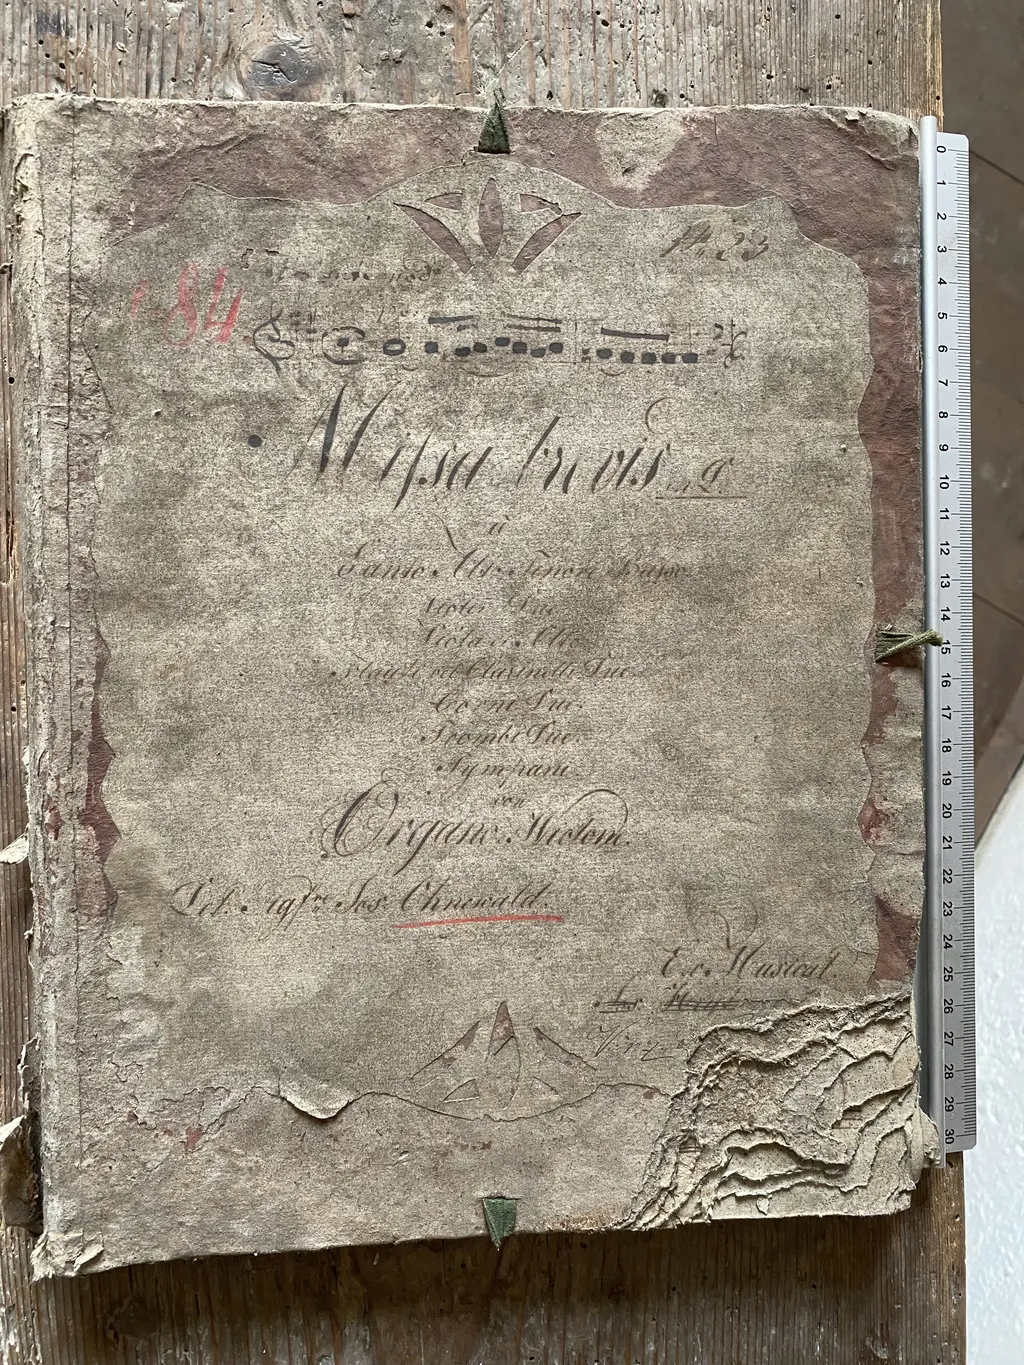 184.
Nr. 23
Missa brevis in g
à
Canto Alto Tenore Basso
Violini Due
Viola
Clarinetti Due
Corni Due.
Trombe Due
Tympani
con
Organo è Violone.
Del. Sigre Jos. Ohnewald.
Ex Musical.
Jos.
0
1
2
3
4
5
6
7
8
9
10
11
12
13
14
15
16
17
18
19
20
21
22
23
24
25
26
27
28
29
30